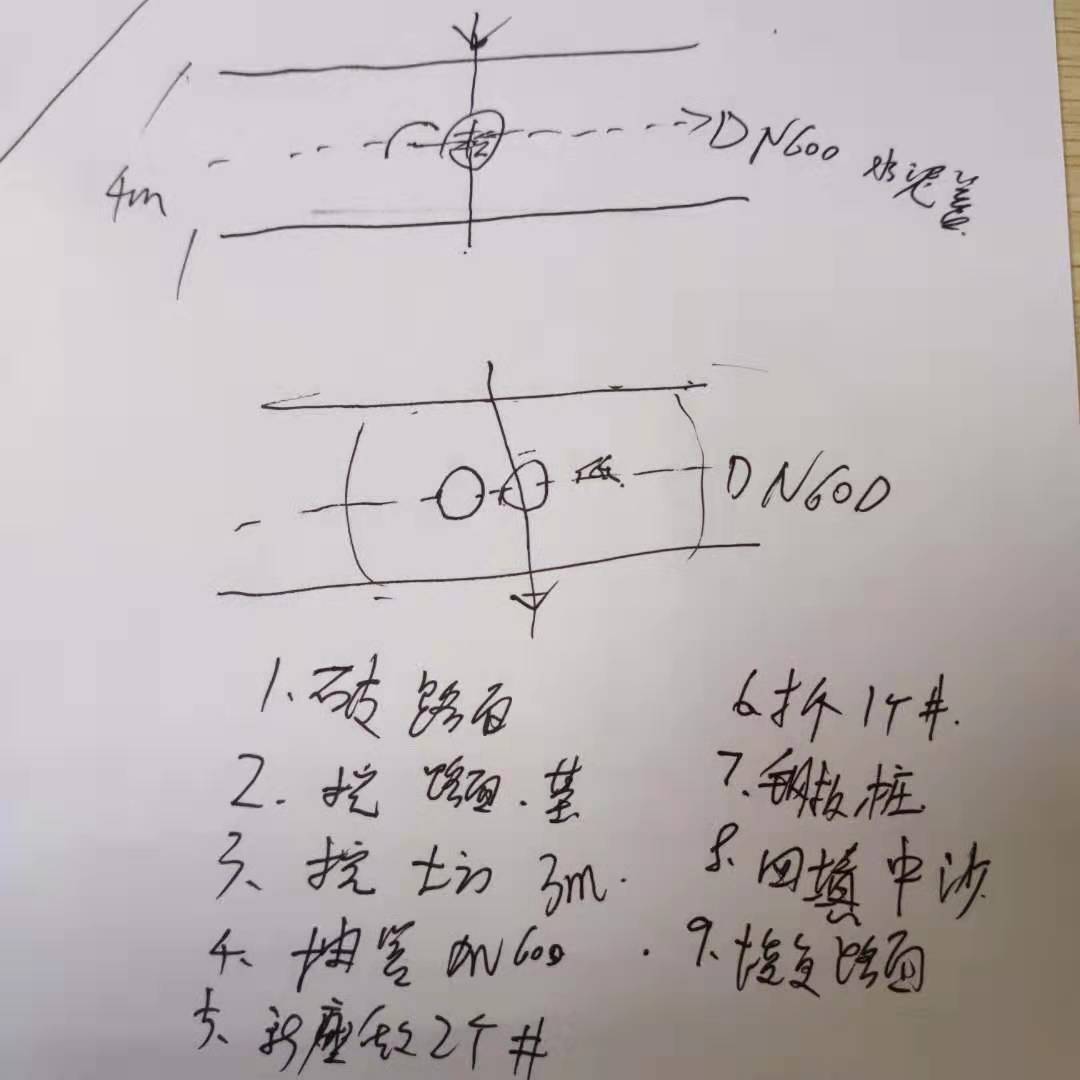 DN600 水泥管
4m
DN600
1、破路面
2. 挖路面.基
3、挖土方3m.
4、抽管DN600.
5、新建2个井
6、拆1个井.
7、钢板桩
8、回填中沙
9、恢复路面